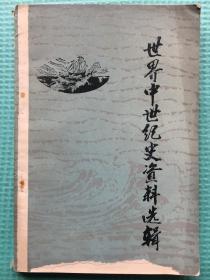 世界中世纪史资料选辑